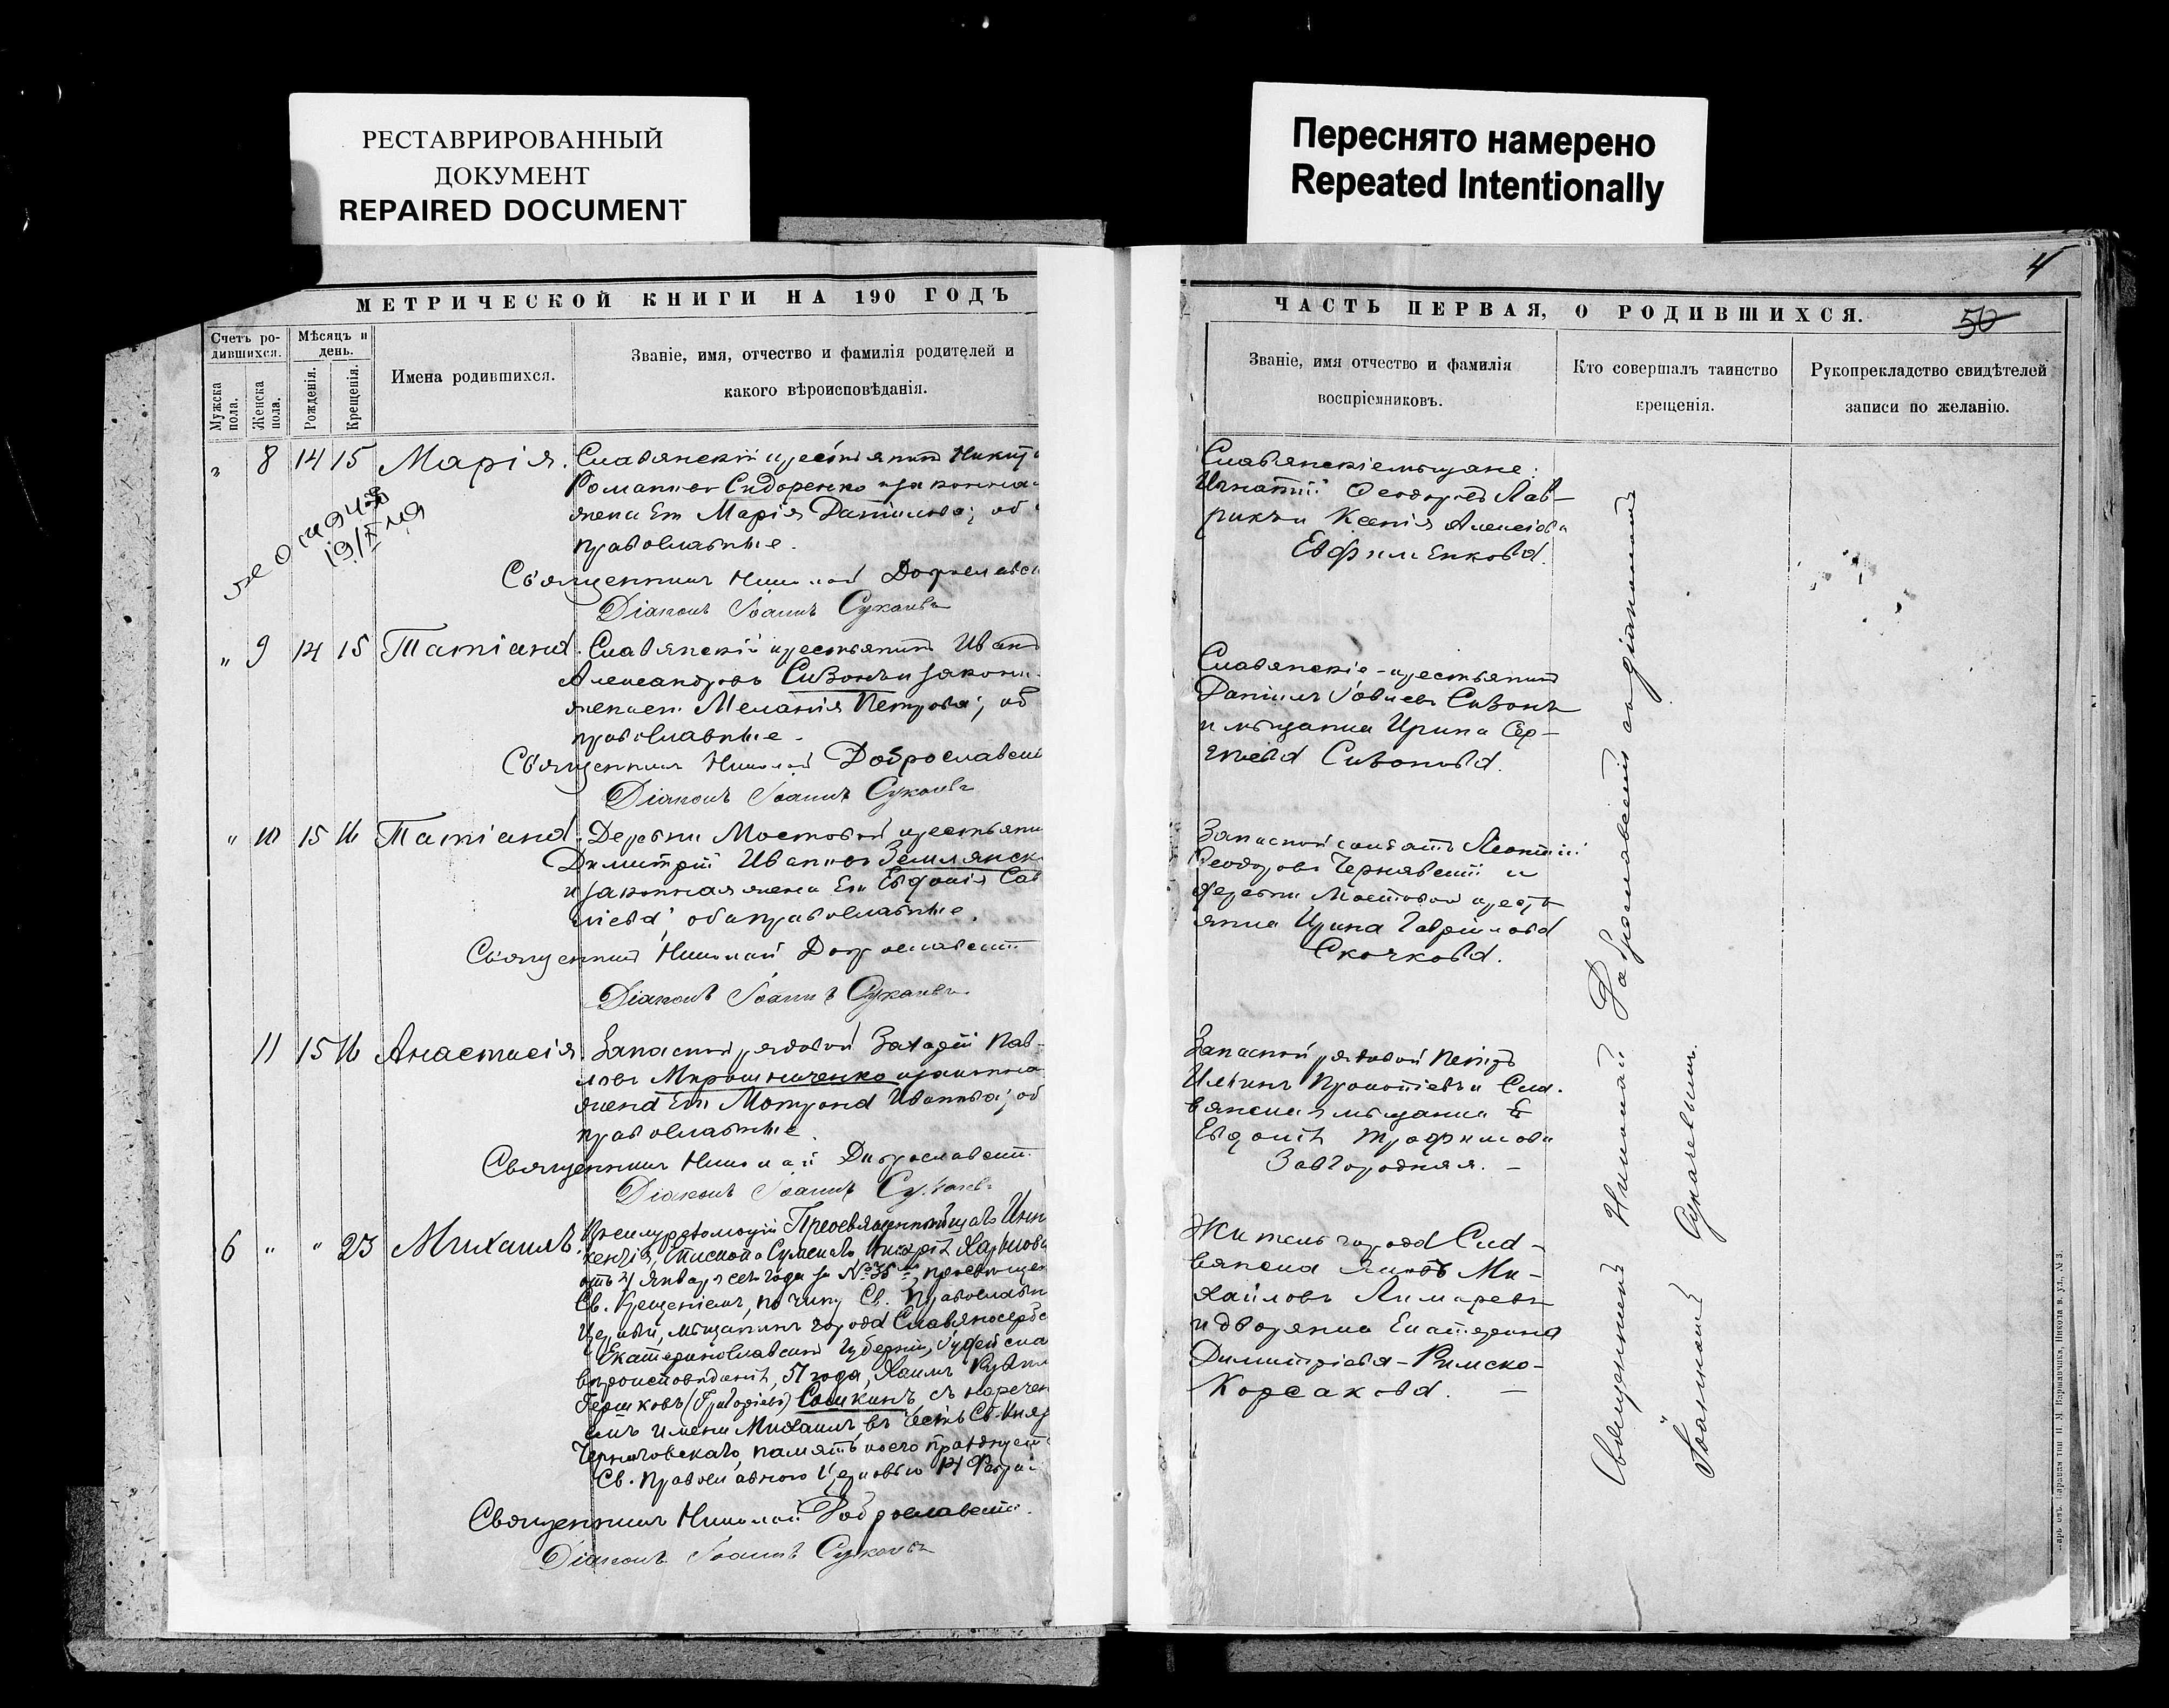 РЕСТАВРИРОВАННЫЙ
ДОКУМЕНТ
REPAIRED DOCUMENT
Переснято намерено
Repeated Intentionally
МЕТРИЧЕСКОЙ КНИГИ НА 190 ГОДЪ
Счетъ ро-
дившихся.
Мѣсяцъ и
день.
Мужска
пола.
Женска
пола.
Рожденія.
Крещенія.
Имена родившихся.
Званіе, имя, отчество и фамилія родителей и
какого вѣроисповѣданія.
„ 8 14 15 Марія. Славянскій крестьянинъ
Романовъ Сидоренко и законная
жена его Марія Даніилова;
православные.
Священникъ Николай
Діаконъ Іоаннъ Сукачевъ
„ 9 14 15 Татіана. Славянскій крестьянинъ Иванъ
Александровъ Сивонъ и закон.
жена его Меланія Петрова;
православные.
Священникъ Николай Доброславскі
Діаконъ Іоаннъ Сукачевъ
„ 10 15 16 Татіана. Деревни Мостовой крестьяни
Димитрій Ивановъ Землянск
и законная жена его Евдокія Сав
оба православные.
Священникъ Николай Доброславскій
Діаконъ Іоаннъ Сукачевъ
11 15 16 Анастасія. Запасной рядовой Захарій Пав-
ловъ Мирошниченко и законна
жена его Матрона Иванова; об
православные.
Священникъ Николай Доброславскій
Діаконъ Іоаннъ Сукачевъ
6 „ „ 23 Михаилъ.
Епископа Сумскаго, Харьковс
Января сего года за № 35
Св. Крещеніемъ, по чину Св. Православн
Церкви, мѣщанинъ города Славяносербс
Екатеринославской губерніи, Іудейска
вѣроисповѣданія, 51 года, Хаимъ
Гершковъ (Григорьевъ) Сошкинъ, съ наречен
емъ имени Михаилъ, въ честь Св. Княз
Черниговскаго, память коего празднует
Св. Православною Церковью 14 Февра
Священникъ Николай Доброславскій.
Діаконъ Іоаннъ Сукачевъ
4
ЧАСТЬ ПЕРВАЯ, О РОДИВШИХСЯ.
50
Званіе, имя отчество и фамилія
воспріемниковъ.
Кто совершалъ таинство
крещенія.
Рукоприкладство свидѣтелей
записи по желанію.
Славянскіе мѣщане:
Игнатій Ѳеодоровъ Лав-
рикъ и Ксенія Алексіева
Евфименкова.
Славянскіе крестьянинъ
Даніилъ Сивонъ
и мѣщанка Ирина Сер-
гіева Сивонова.
Запасной солдатъ Леонтій
Ѳеодоровъ Чернявскій и
деревни Мостовой кресть
янка Ирина Гавриилова
Скочкова.
Запасной рядовой Петръ
Ильинъ Прокопіевъ и Сла-
вянская мѣщанка
Евдокія Трофимова
Завгородняя. –
Житель города Сла-
вянска Яковъ Ми-
хайловъ Лимаревъ
и дворянка Екатерина
Димитріева-Римско-
Корсакова. –
Священникъ Николай Доброславскій съ діакономъ
Іоанномъ Сукачевымъ.